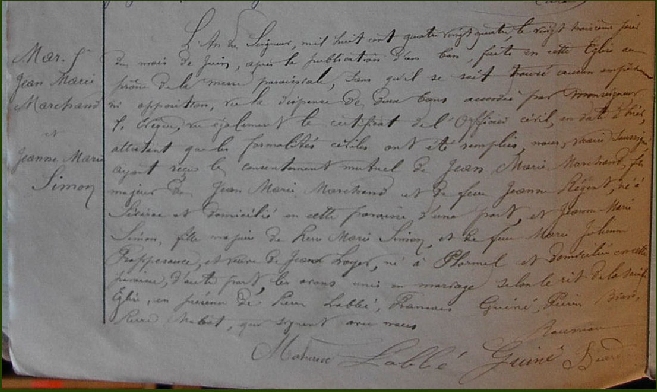 Mar. J.
Jean Marie
Marchand
et
Jeanne Marie
Simon
L'An du Seigneur, mil huit cent quatre vingt quatre, le vingt troisième jour
du mois de juin, après la publication d'un ban, faite en cette Eglise au
prône de la messe paroissiale, sans qu'il se soit trouvé aucun empêchement
ni opposition, vu la dispense de deux bans accordée par Monseigneur
L'Evêque, vu également le certificat de l'Officier civil, en date d'hier,
attestant que les formalités civiles ont été remplies, nous
ayant reçu le consentement mutuel de Jean Marie Marchand, fils
majeur de Jean Marie Marchand et de feu Jeanne, né à
et domicilié en cette paroisse d'une part, et Jeanne Marie
Simon, fille majeure de Pierre Marie Simon, et de feu Marie
et veuve de Jean, né à Ploermel et domiciliée en cette
paroisse, d'autre part, les avons unis en mariage selon le rit de la Sainte
Eglise, en présence de Pierre Labbé, François Guiné, Pierre
Pierre, qui signent avec nous
Labbé Guiné